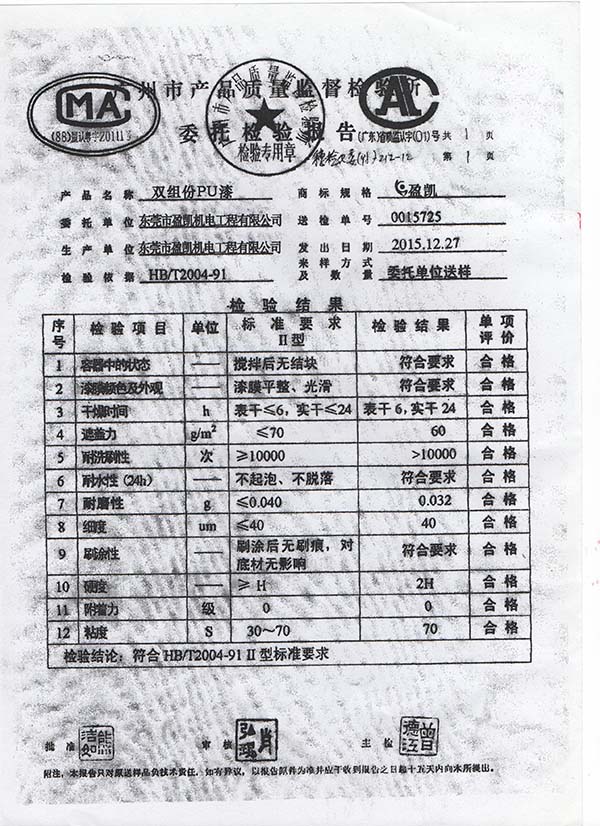 广州市产品质量监督检验所
CMA
CAL
委托检验报告
(广东)省质监认字(01)号 共 1 页
检验专用章
第 1 页
产品名称 双组份PU漆 商标规格 盈凯
委托单位 东莞市盈凯机电工程有限公司 送检单号 0015725
生产单位 东莞市盈凯机电工程有限公司 发出日期 2015.12.27
检验依据 HB/T2004-91 来样方式及数量 委托单位送样
检验结果
序号 检验项目 单位 标准要求 II型 检验结果 单项评价
1 容器中的状态 —— 搅拌后无结块 符合要求 合格
2 漆膜颜色及外观 —— 漆膜平整、光滑 符合要求 合格
3 干燥时间 h 表干≤6,实干≤24 表干6,实干24 合格
4 遮盖力 g/m² ≤70 60 合格
5 耐洗刷性 次 ≥10000 >10000 合格
6 耐水性(24h) —— 不起泡、不脱落 符合要求 合格
7 耐磨性 g ≤0.040 0.032 合格
8 细度 um ≤40 40 合格
9 刷涂性 —— 刷涂后无刷痕,对底材无影响 符合要求 合格
10 硬度 —— ≥H 2H 合格
11 附着力 级 0 0 合格
12 粘度 S 30～70 70 合格
检验结论:符合HB/T2004-91 II型标准要求
批准 审核 主检
附注:本报告只对原送样品负技术责任。如有异议,以报告原件为准并应于收到报告之日起十五天内向本所提出。